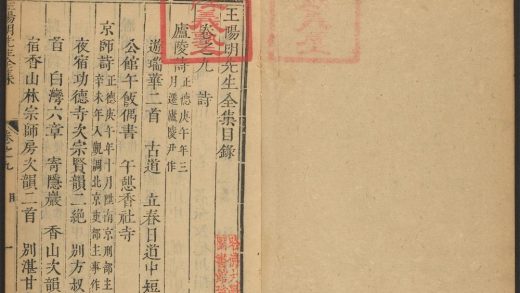 王陽明先生全集目錄
卷之九 詩
廬陵詩 正德庚午年三月遷廬陵尹作
遊瑞華二首 古道 立春日道中短
公館午飯偶書 午憇香社寺
京師詩 正德庚午年十月陞南京刑部主事辛未年入覲調北京吏部主事作
夜宿功德寺次宗賢韻二絶 別方叔
首 白灣六章 寄隱巖 香山次韻
宿香山林宗師房次韻二首 別湛甘
王陽明先生全集 卷之九 目 一